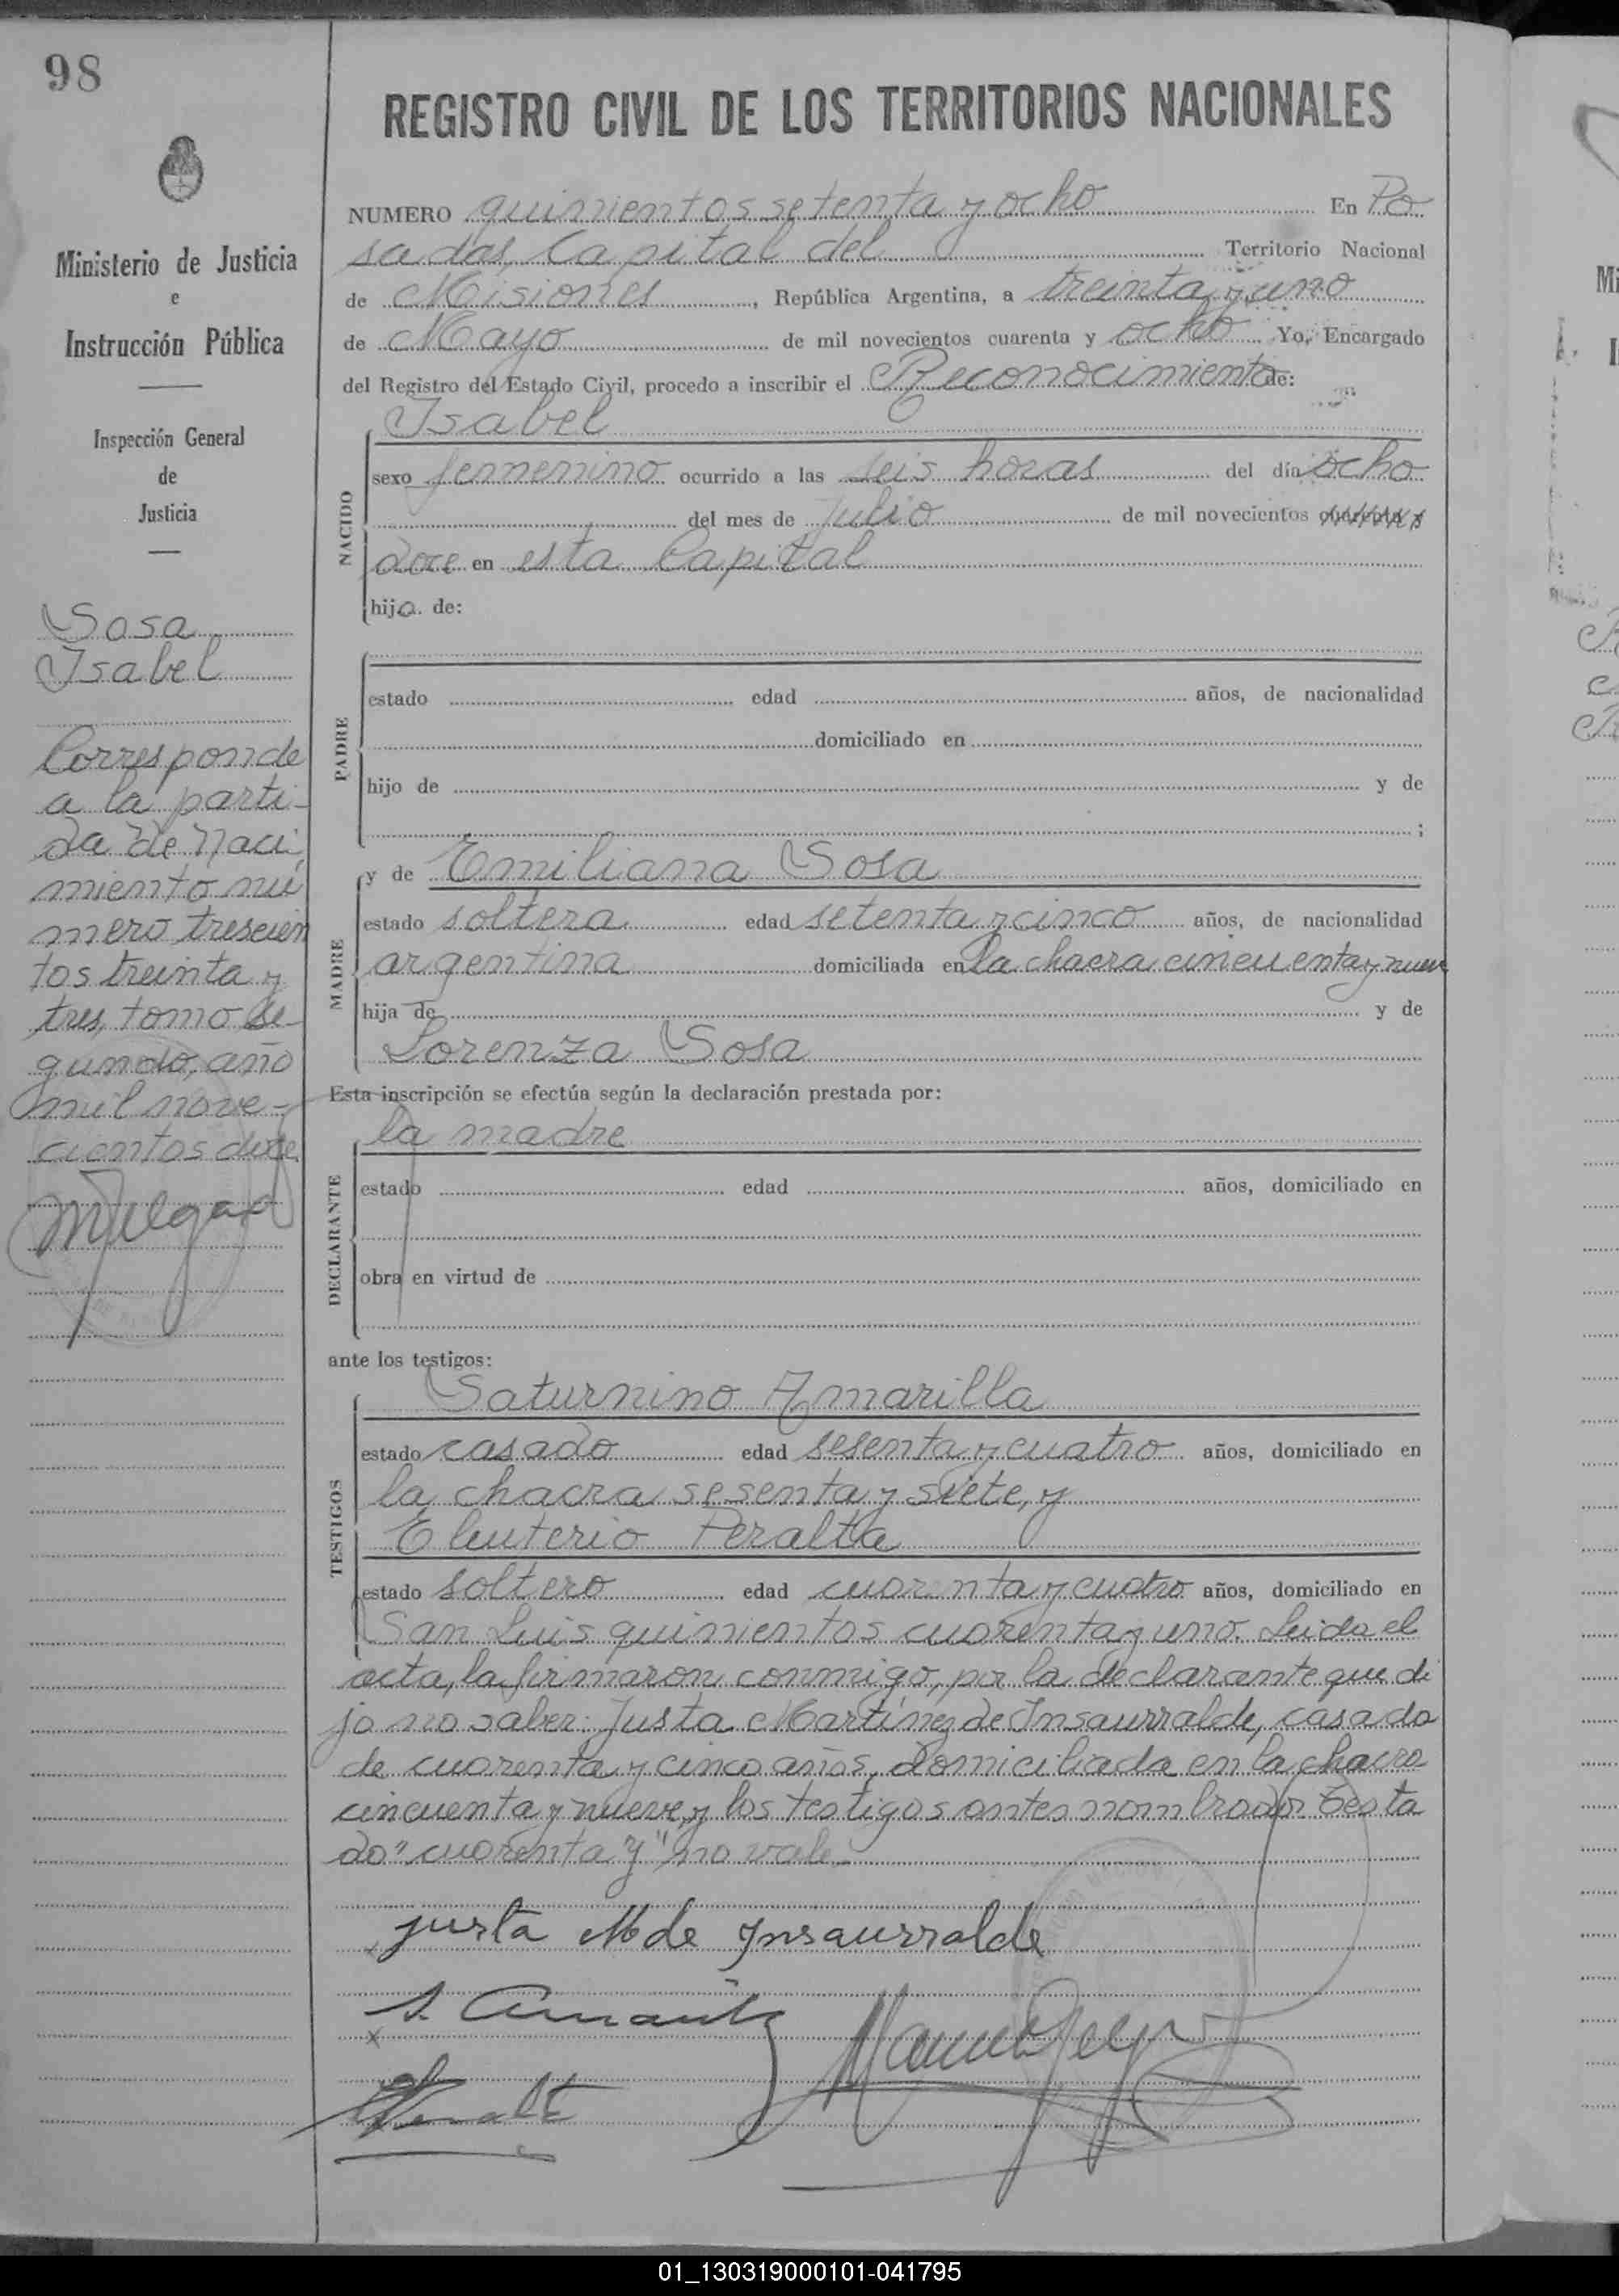 98
REGISTRO CIVIL DE LOS TERRITORIOS NACIONALES
Ministerio de Justicia
e
Instrucción Pública
Inspección General
de
Justicia
Sosa
Isabel
Corresponde
a la parti-
da de naci
miento nú
mero trescien
tos treinta y
tres, tomo se-
gundo, año
mil nove-
cientos doce
NUMERO quinientos setenta y ocho En Po
sadas, Capital del Territorio Nacional
de Misiones, República Argentina, a treinta y uno
de Mayo de mil novecientos cuarenta y ocho Yo, Encargado
del Registro del Estado Civil, procedo a inscribir el Reconocimiento de:
NACIDO
Isabel
sexo femenino ocurrido a las seis horas del día ocho
del mes de Julio de mil novecientos cuarenta y
doce en esta Capital
hija de:
PADRE
estado edad años, de nacionalidad
domiciliado en
hijo de y de
;
MADRE
y de Emiliana Sosa
estado soltera edad setenta y cinco años, de nacionalidad
argentina domiciliada en la chacra cincuenta y nueve
hija de y de
Lorenza Sosa
Esta inscripción se efectúa según la declaración prestada por:
DECLARANTE
la madre
estado edad años, domiciliado en
obra en virtud de
ante los testigos:
TESTIGOS
Saturnino Amarilla
estado casado edad sesenta y cuatro años, domiciliado en
la chacra sesenta y siete, y
Eleuterio Peralta
estado soltero edad cuarenta y cuatro años, domiciliado en
San Luis quinientos cuarenta y uno. Leida el
acta, la firmaron conmigo, por la declarante que di
jo no saber: Justa Martínez de Insaurralde, casada
de cuarenta y cinco años, domiciliada en la chacra
cincuenta y nueve, y los testigos antes nombrados. Testa
do "cuarenta y" no vale.-
justa M de Insaurralde
01_130319000101-041795